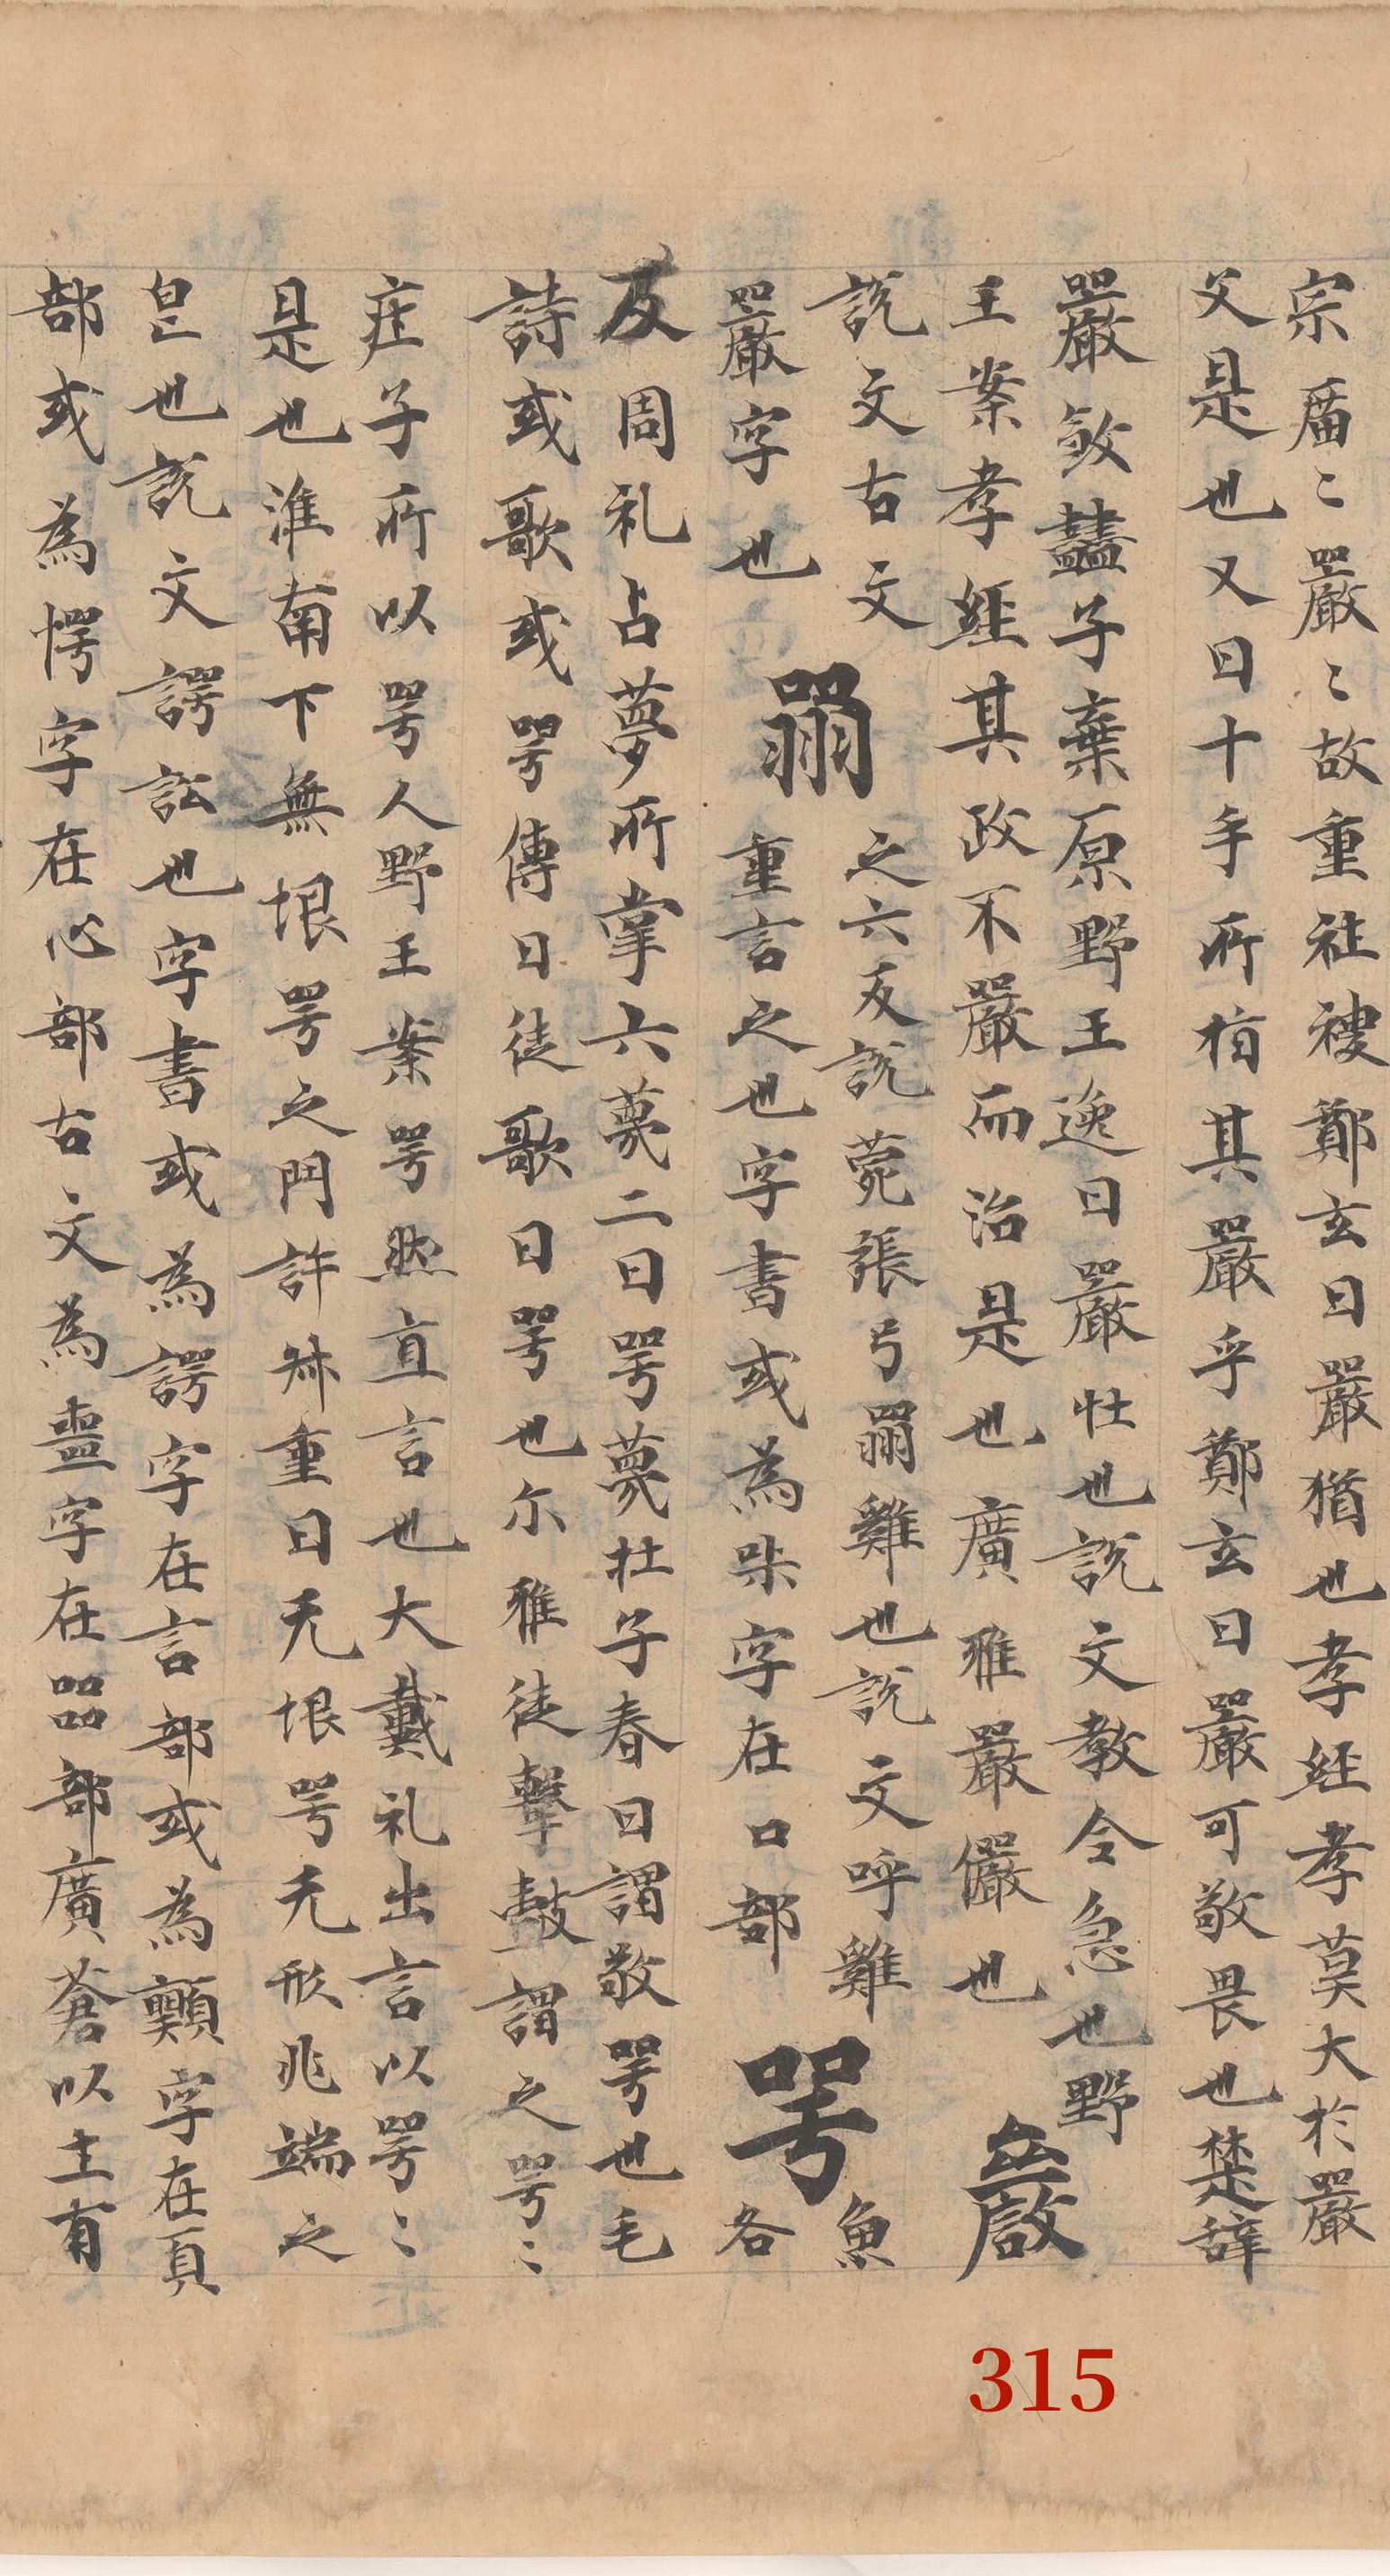 宗廟〻嚴〻故重社禝鄭玄曰嚴猶也孝経孝莫大於嚴
父是也又曰十手所指其嚴乎鄭玄曰嚴可敬畏也楚辞
嚴敜𧅄子棄原野王逸曰嚴壮也說文教令急也野
王案孝経其政不嚴而治是也廣雅嚴儼也 𠪚
說文古文
嚴字也
喌 之六反說菀張弓喌雞也說文呼雞
重言之也字書或為喌字在口部
咢 魚
各
反周礼占夢所掌六夢二曰咢夢杜子春曰謂敬咢也毛
詩或歌或咢傳曰徒歌曰咢也尓雅徒擊鼓謂之咢〻
疰子所以咢人野王案咢然直言也大戴礼出言以咢〻
是也淮南下無垠咢之門許叔重曰无垠咢无形兆端之
皃也說文謣訟也字書或為謣字在言部或為顎字在頁
部或為愕字在心部古文為噩字在㗊部廣蒼以土有
315